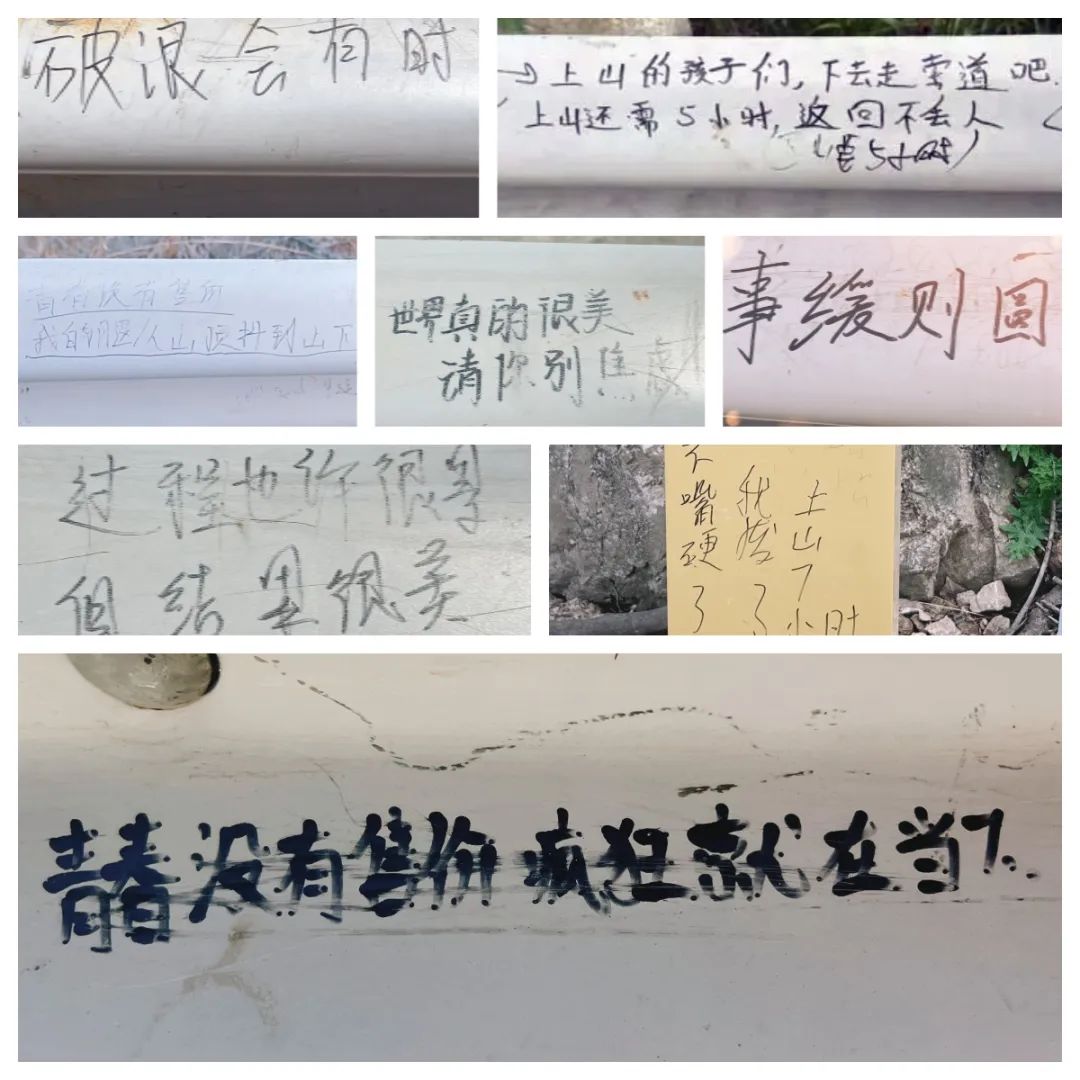 破浪会有时
→上山的孩子们,下去走索道吧.
上山还需5小时,返回不丢人
5小时)
青春没有售价
山顶抖到山下
世界真的很美
请你别焦虑
事缓则圆
过程也许很
但结果很美
上山7小时
我了
不嘴硬了
青春没有售价 疯狂就在当下.